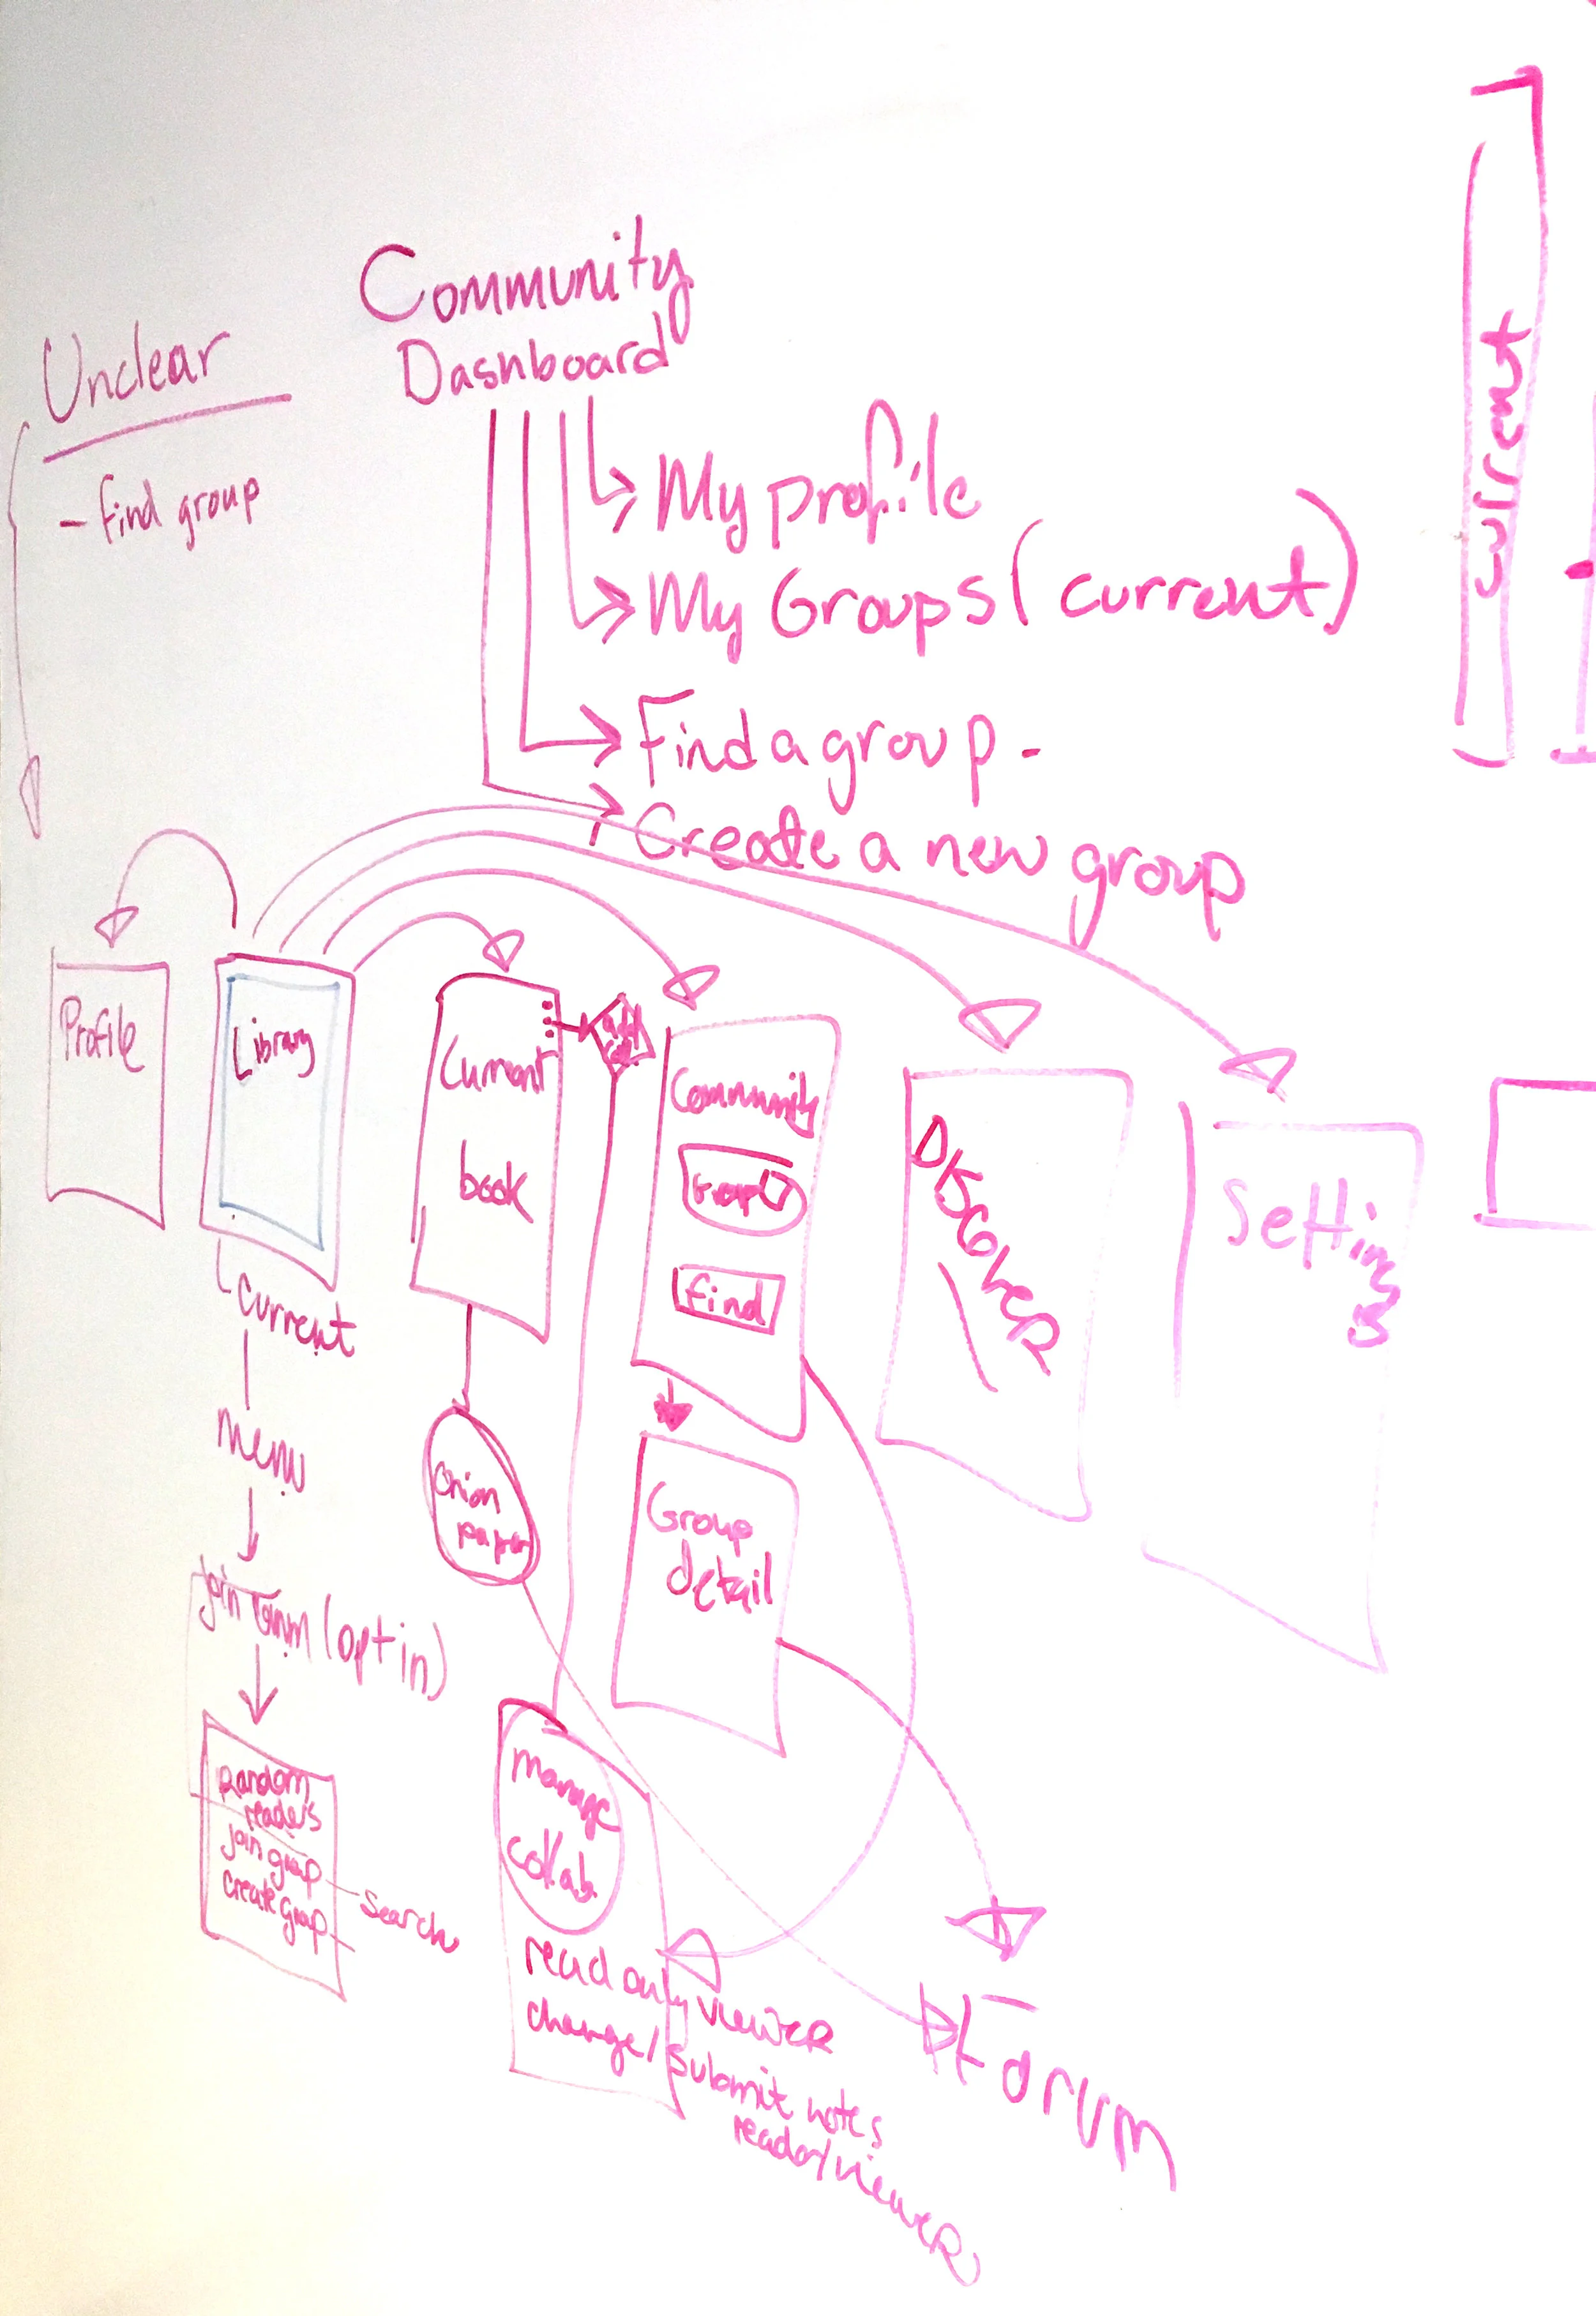 Community
Dashboard
Unclear
- find group
My profile
My Groups (current)
Find a group -
Create a new group
current
Profile
Library
Current
book
Community
Group
find
DISCOVER
Settings
current
menu
Onion
paper
Group
detail
join (opt in)
Random
readers
join group
create group
Search
manage
collab.
read only viewer
change/submit notes
reader/viewer
Forum